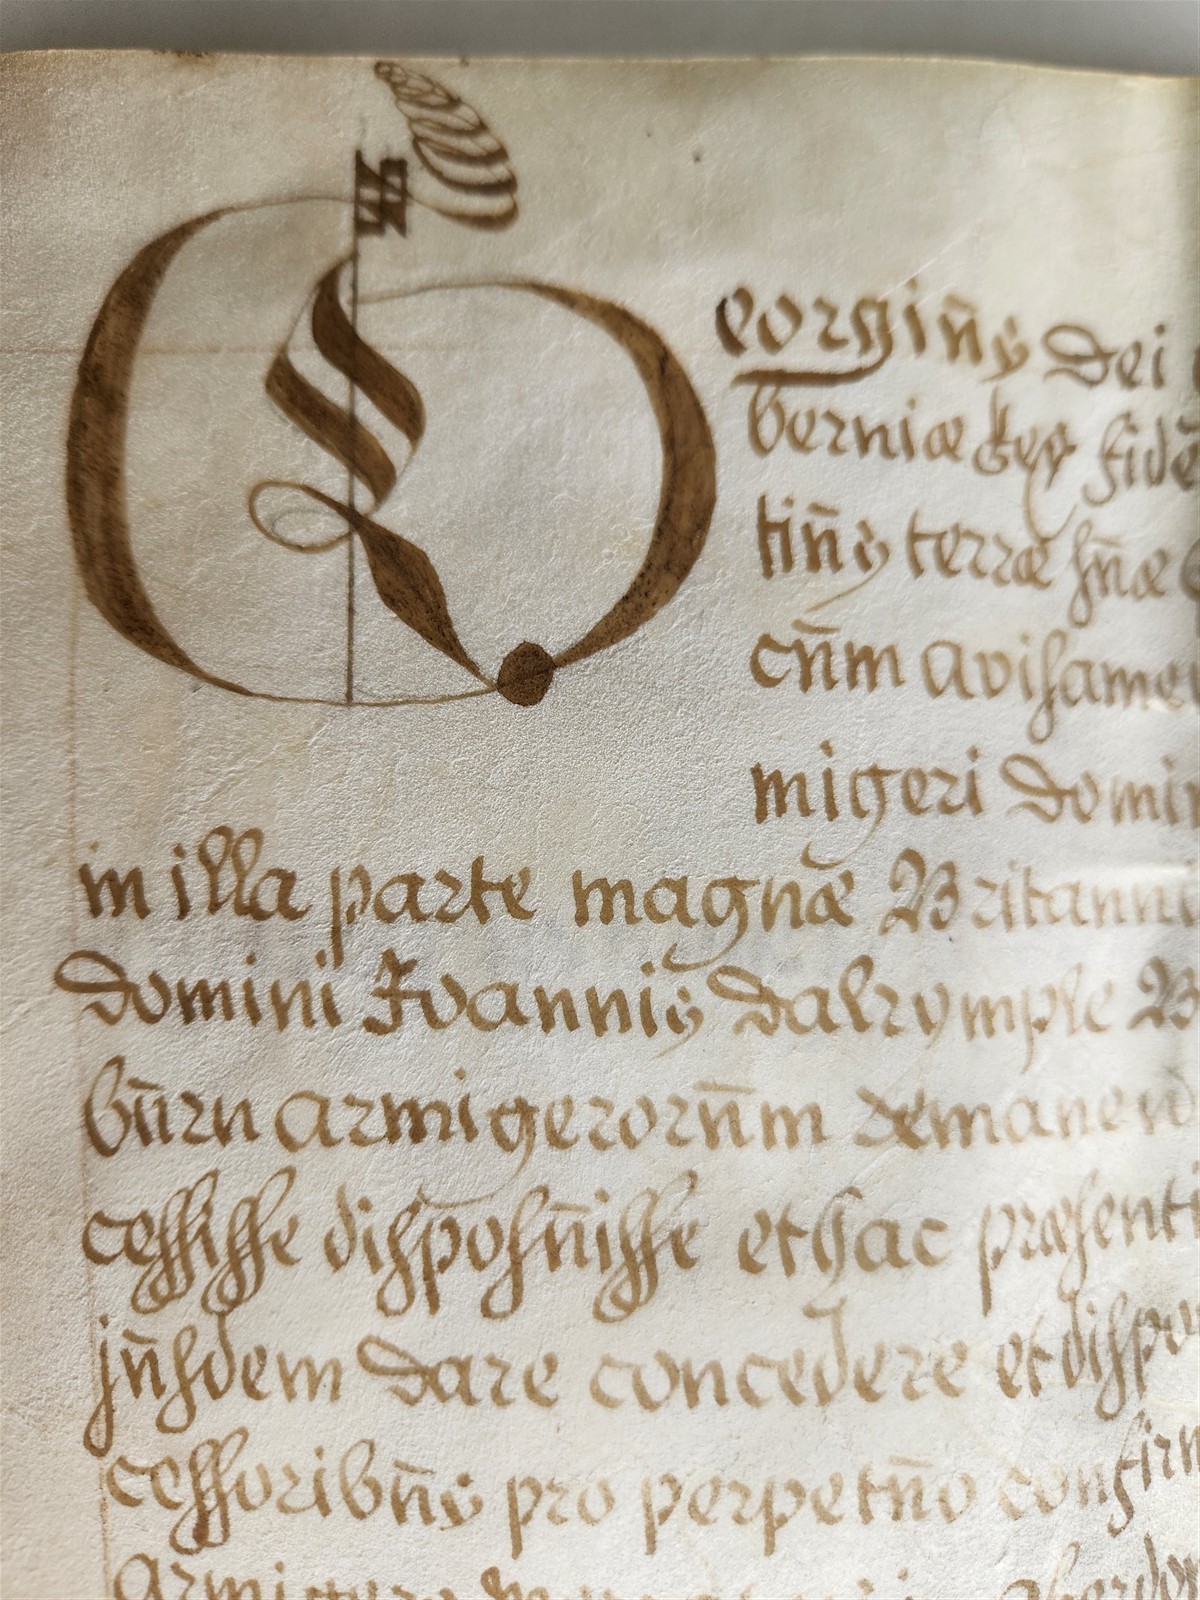 Georgius Dei
berniæ Rex fide
tius terræ suæ
cum avisame
migeri domin
in illa parte magnæ Britanni
domini Joannis Dalrymple B
burn armigerorum remanen
cessisse disposuisse et hac præsenti
jusdem dare concedere et dispo
cessoribus pro perpetuo confirm